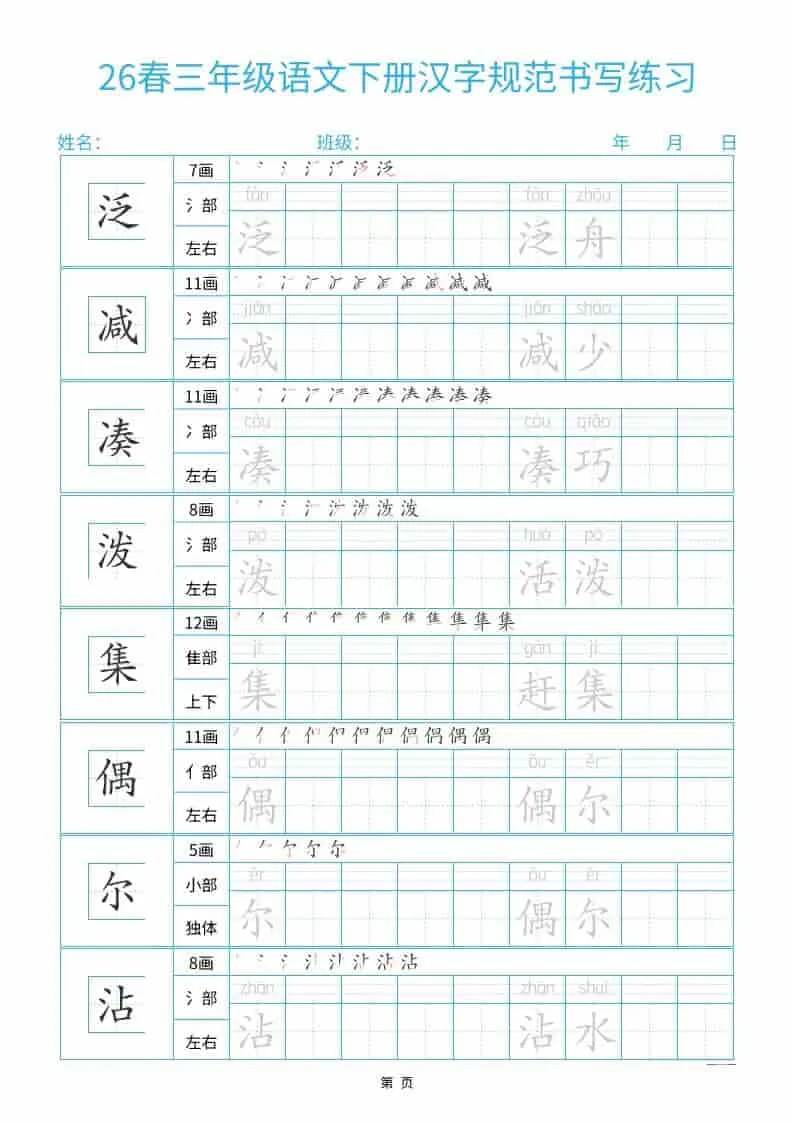 26春三年级语文下册汉字规范书写练习
姓名： 班级： 年 月 日
泛 7画
fàn fàn zhōu
氵部
左右 泛 泛 舟
减 11画
jiǎn jiǎn shǎo
冫部
左右 减 减 少
凑 11画
còu còu qiǎo
冫部
左右 凑 凑 巧
泼 8画
pō huó pō
氵部
左右 泼 活 泼
集 12画
jí gǎn jí
隹部
上下 集 赶 集
偶 11画
ǒu ǒu ěr
亻部
左右 偶 偶 尔
尔 5画
ěr ǒu ěr
小部
独体 尔 偶 尔
沾 8画
zhān zhān shuǐ
氵部
左右 沾 沾 水
第 页